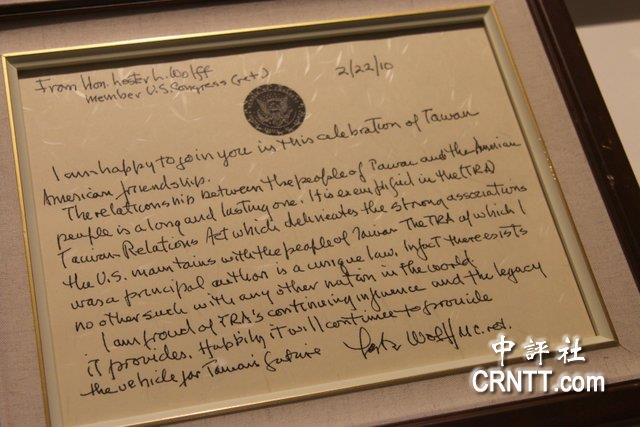 From Hon. Lester L. Wolff
member U.S. Congress (ret)
2/22/10
I am happy to join you in this celebration of Taiwan
American friendship.
The relationship between the people of Taiwan and the American
people is a long and lasting one. It is exemplified in the (TRA)
Taiwan Relations Act which delineates the strong associations
the U.S. maintains with the people of Taiwan. The TRA of which I
was a principal author is a unique law. In fact there exists
no other such with any other nation in the world
I am proud of TRA's continuing influence and the legacy
it provides. Happily it will continue to provide
the vehicle for Taiwan's future
Lester Wolff M.C. ret.
中評社
CRNTT.com